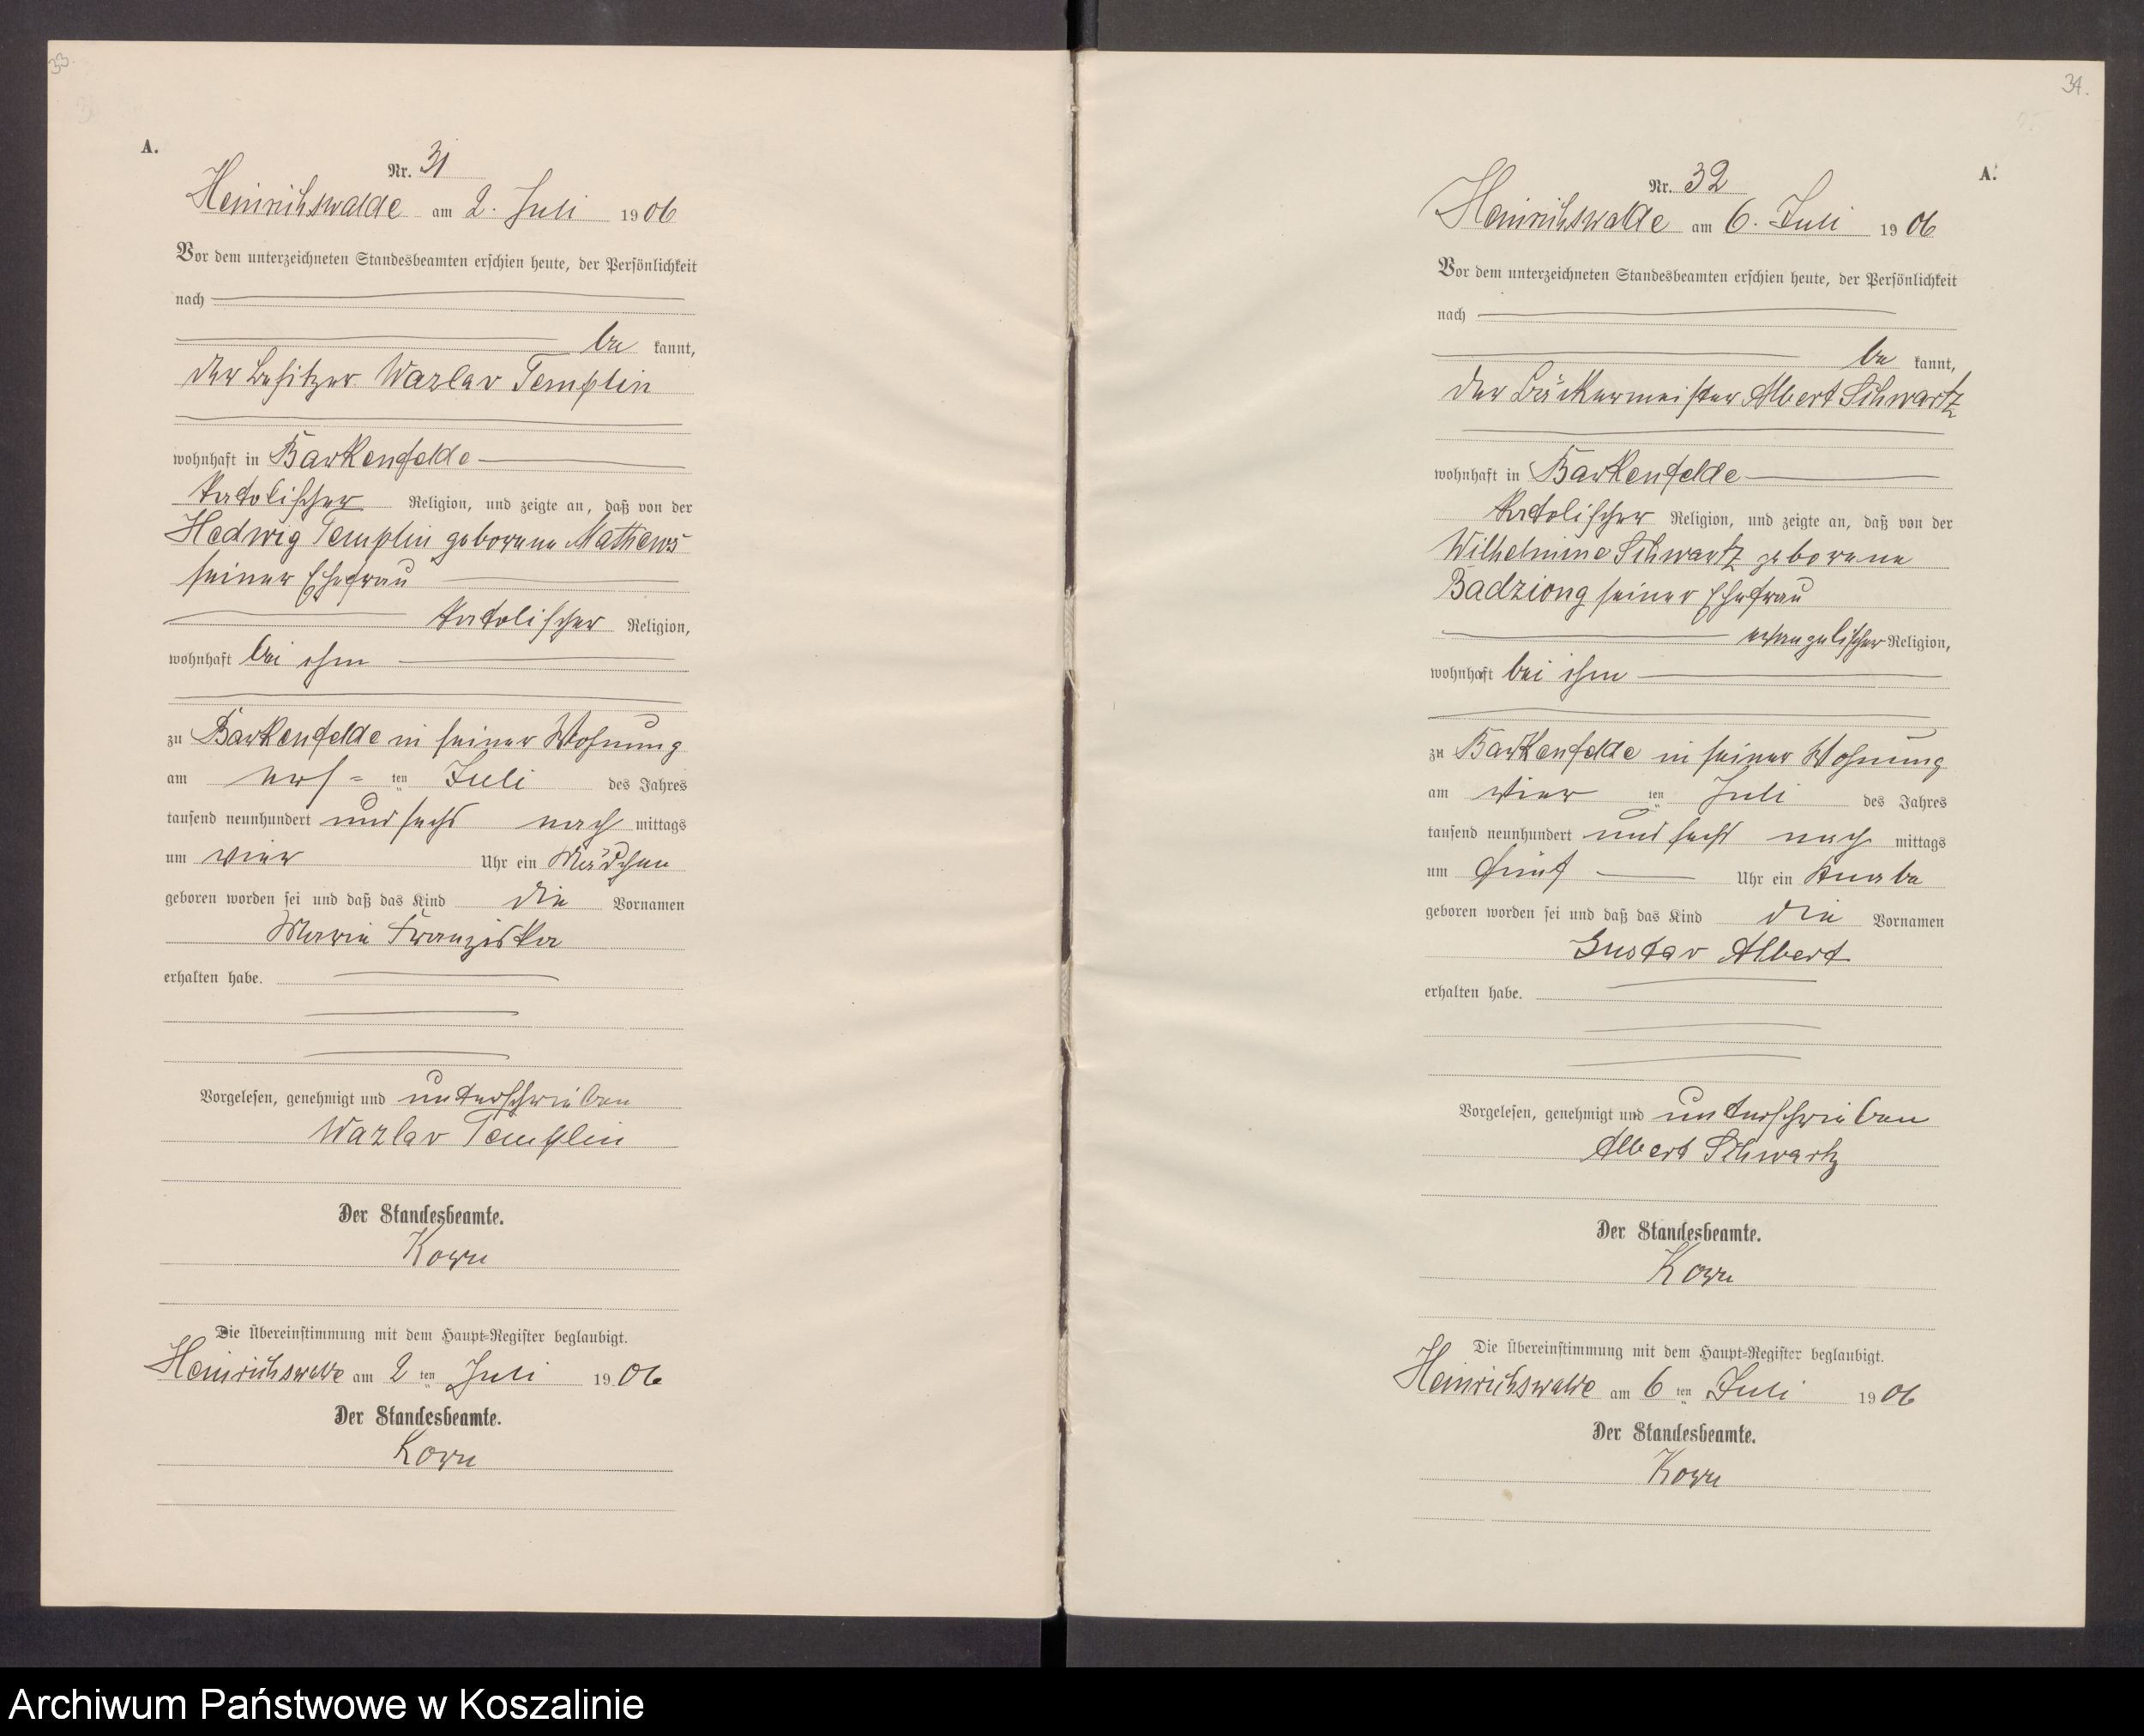 33.
A.
Nr. 31
Heinrichswalde am 2. Juli 1906
Vor dem unterzeichneten Standesbeamten erschien heute, der Persönlichkeit
nach
be kannt,
der Besitzer Wazlav Templin
wohnhaft in Barkenfelde
katolischer Religion, und zeigte an, daß von der
Hedwig Templin geborene Mathews
seiner Ehefrau
katolischer Religion,
wohnhaft bei ihm
zu Barkenfelde in seiner Wohnung
am ers= ten Juli des Jahres
tausend neunhundert und sechs nach mittags
um vier Uhr ein Mädchen
geboren worden sei und daß das Kind die Vornamen
Marie Franziska
erhalten habe.
Vorgelesen, genehmigt und unterschrieben
Wazlav Templin
Der Standesbeamte.
Korn
Die Übereinstimmung mit dem Haupt=Register beglaubigt.
Heinrichswalde am 2 ten Juli 1906
Der Standesbeamte.
Korn
34.
A.
Nr. 32
Heinrichswalde am 6. Juli 1906
Vor dem unterzeichneten Standesbeamten erschien heute, der Persönlichkeit
nach
be kannt,
der Bäckermeister Albert Schwartz
wohnhaft in Barkenfelde
katolischer Religion, und zeigte an, daß von der
Wilhelmine Schwartz geborene
Badziong seiner Ehefrau
evangelischer Religion,
wohnhaft bei ihm
zu Barkenfelde in seiner Wohnung
am vier ten Juli des Jahres
tausend neunhundert und sechs nach mittags
um fünf Uhr ein Knabe
geboren worden sei und daß das Kind die Vornamen
Gustav Albert
erhalten habe.
Vorgelesen, genehmigt und unterschrieben
Albert Schwartz
Der Standesbeamte.
Korn
Die Übereinstimmung mit dem Haupt=Register beglaubigt.
Heinrichswalde am 6 ten Juli 1906
Der Standesbeamte.
Korn
Archiwum Państwowe w Koszalinie